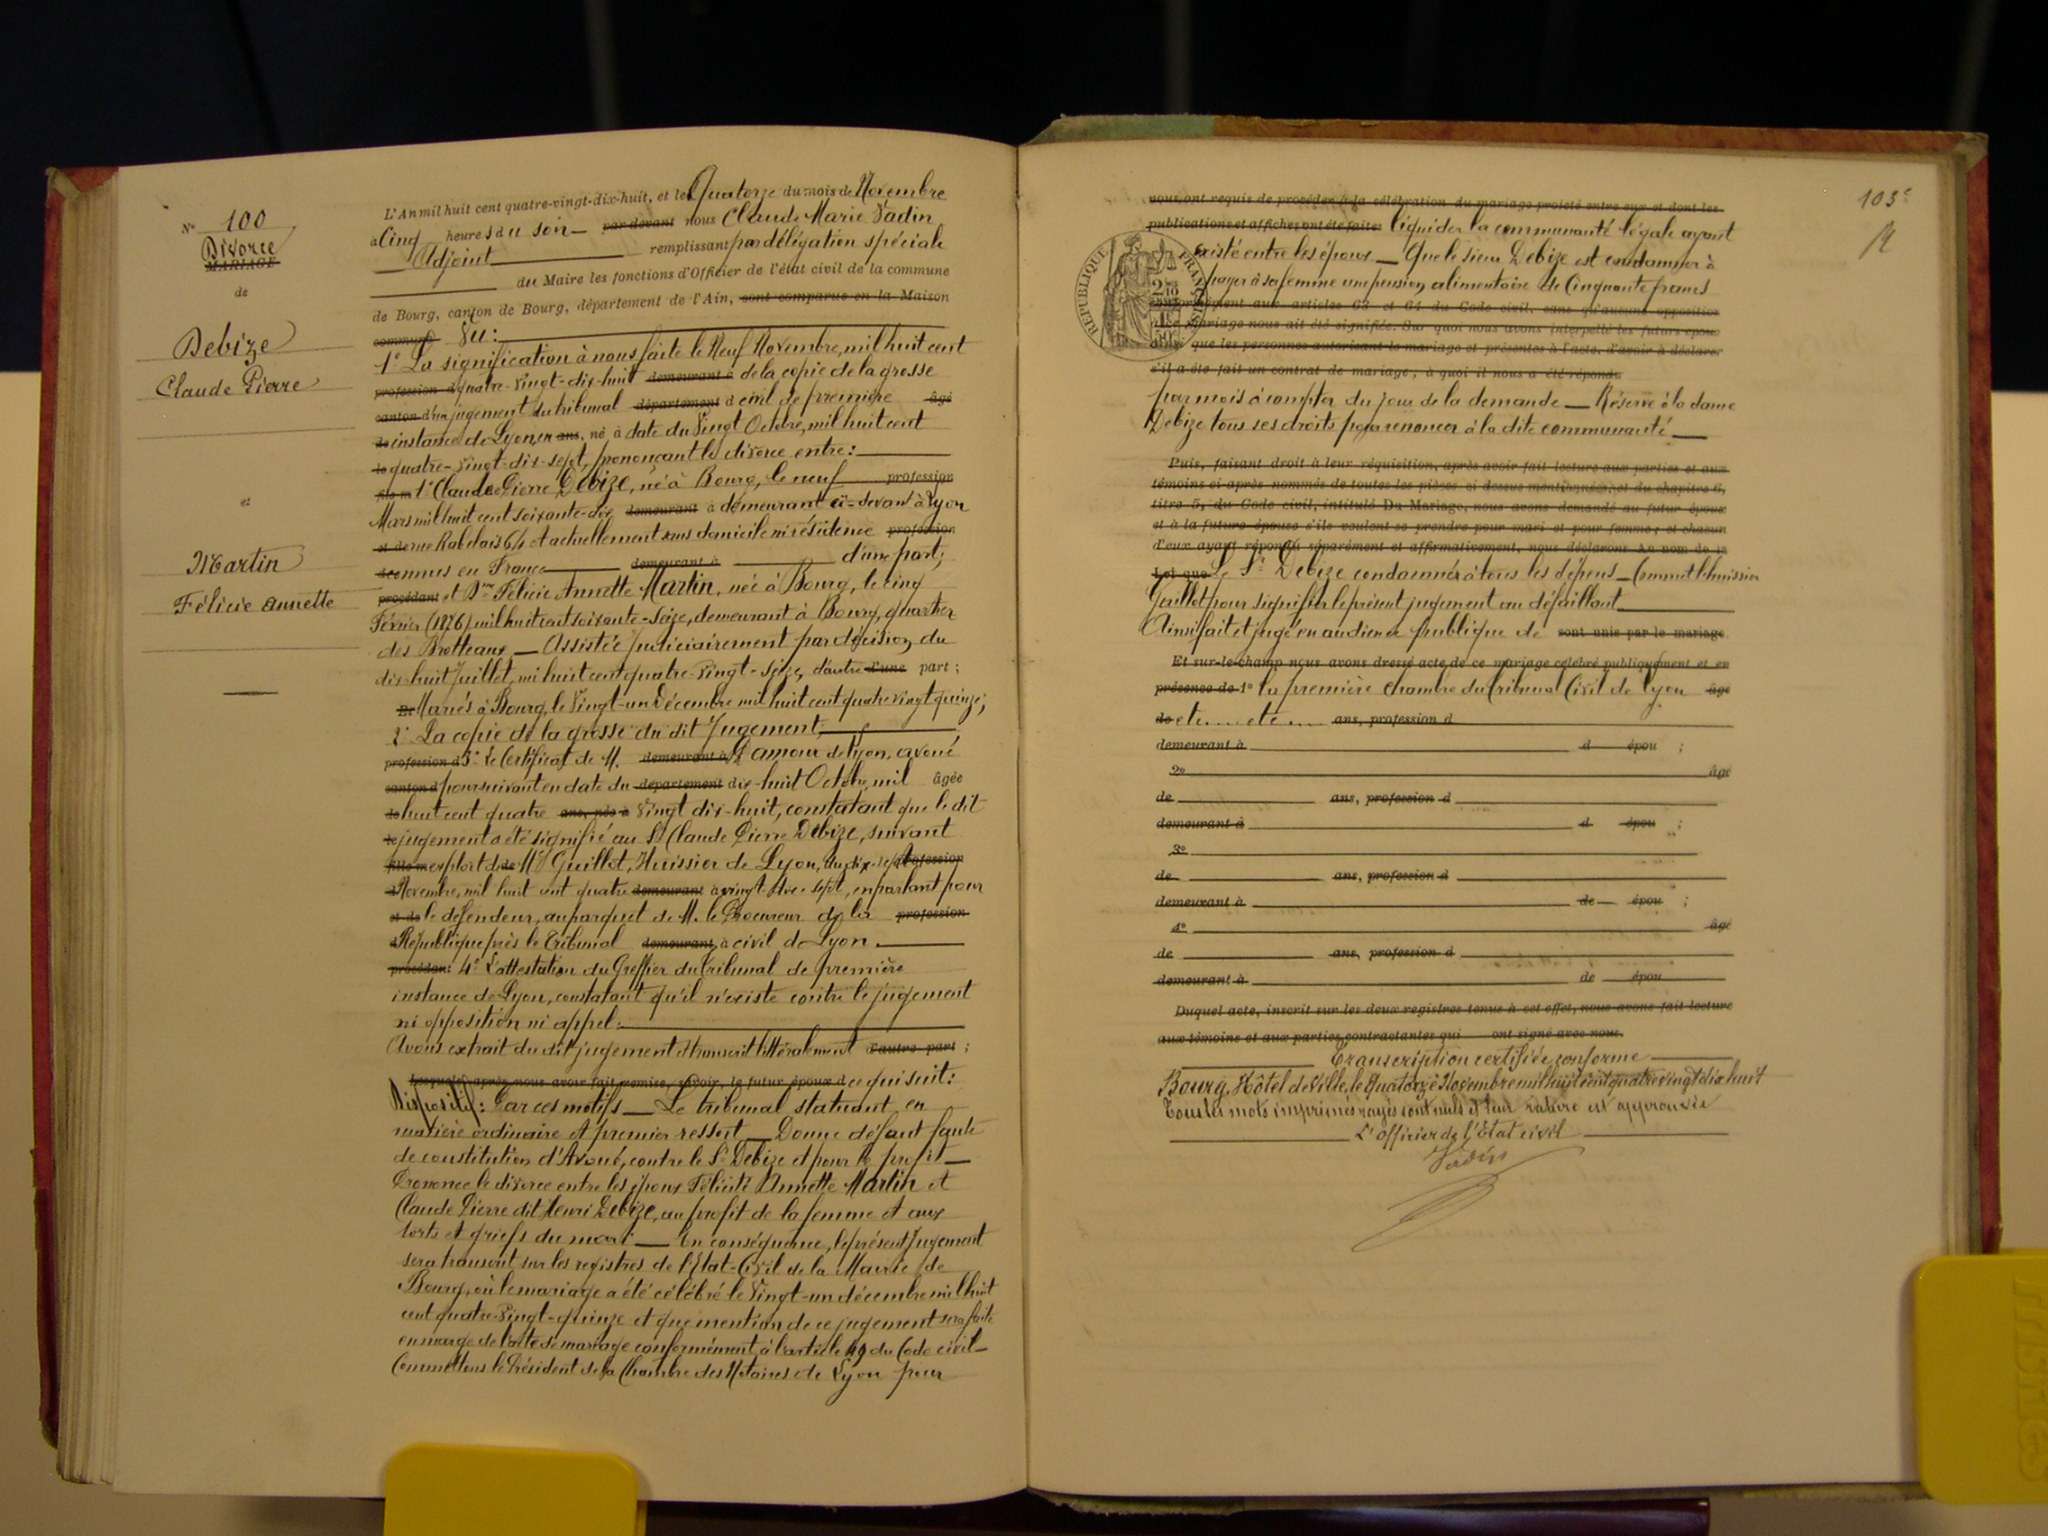 N° 100
Divorce
MARIAGE
de
Debize
Claude Pierre
et
Martin
Félicie Annette
L'An mil huit cent quatre-vingt-dix-huit, et le Quatorze du mois de Novembre
à Cinq heures du soir par-devant nous Claude Marie Vadin
Adjoint remplissant par délégation spéciale
du Maire les fonctions d'Officier de l'état civil de la commune
de Bourg, canton de Bourg, département de l'Ain, sont comparus en la Maison
commune Vu :
1° La signification à nous faite le Neuf Novembre, mil huit cent
profession d quatre-vingt-dix-huit demeurant à de la copie de la grosse
canton d'un jugement du tribunal département d civil de première âgé
de instance de Lyon en ans, né à date du Vingt Octobre, mil huit cent
le quatre-vingt-dix-sept, prononçant le divorce entre :
fils m 1° Claude Pierre Debize, né à Bourg, le neuf profession
Mars mil huit cent soixante-dix demeurant à demeurant ci-devant à Lyon
et de rue Rabelais 6/1 et actuellement sans domicile ni résidence profession
connus en France demeurant à d'une part ;
procédant et Dme Félicie Annette Martin, née à Bourg, le cinq
Février (1876) mil huit cent soixante-seize, demeurant à Bourg, quartier
des Brotteaux — Assistée judiciairement par décision du
dix-huit Juillet, mil huit cent quatre-vingt-seize, d'autre d'une part ;
Et Mariés à Bourg, le Vingt-un Décembre mil huit cent quatre vingt quinze ;
2° La copie de la grosse du dit Jugement,
profession d 3° Le Certificat de M. demeurant à Damour de Lyon, avoué
canton d poursuivant en date du département dix-huit Octobre, mil âgée
de huit cent quatre ans, née à vingt dix-huit, constatant que le dit
le jugement a été signifié au Sr Claude Pierre Debize, suivant
fille m exploit de Me Guillot, Huissier de Lyon, du dix-sept profession
d Novembre, mil huit cent quatre demeurant à vingt dix-sept, en parlant pour
et de le défendeur, au parquet de M. le Procureur de la profession
d République près le Tribunal demeurant à civil de Lyon.
procédant 4° L'attestation du Greffier du Tribunal de première
instance de Lyon, constatant qu'il n'existe contre le jugement
ni opposition ni appel :
Avons extrait du dit jugement et transcrit littéralement d'autre part ;
Lesquels, après nous avoir fait remise, savoir, le futur époux d ce qui suit :
Dispositif : Par ces motifs — Le tribunal statuant en
matière ordinaire et premier ressort — Donne défaut faute
de constitution d'Avoué, contre le Sr Debize et pour le profit —
Prononce le divorce entre les époux Félicité Annette Martin et
Claude Pierre dit Henri Debize, au profit de la femme et aux
torts et griefs du mari — En conséquence, le présent Jugement
sera transcrit sur les registres de l'Etat-Civil de la Mairie de
Bourg, où le mariage a été célébré le Vingt-un décembre mil huit
cent quatre-vingt-quinze et que mention de ce jugement sera faite
en marge de l'acte de mariage conformément à l'article 49 du Code civil —
Commettons le Président de la Chambre des Notaires de Lyon pour
103e
nous ont requis de procéder à la célébration du mariage projeté entre eux et dont les
publications et affiches ont été faites liquider la communauté légale ayant
existé entre les époux — Que le sieur Debize est condamner à
payer à sa femme une pension alimentaire de Cinquante francs
REPUBLIQUE FRANÇAISE
conformément aux articles 63 et 64 du Code civil, sans qu'aucune opposition
à ce mariage nous ait été signifiée. Sur quoi nous avons interpellé les futurs époux
ainsi que les personnes autorisant le mariage et présentes à l'acte, d'avoir à déclarer
s'il a été fait un contrat de mariage ; à quoi il nous a été répondu
par mois à compter du jour de la demande — Réserve à la dame
Debize tous ses droits pour renoncer à la dite communauté —
Puis, faisant droit à leur réquisition, après avoir fait lecture aux parties et aux
témoins ci-après nommés de toutes les pièces ci-dessus mentionnées, et du chapitre 6,
titre 5, du Code civil, intitulé Du Mariage, nous avons demandé au futur époux
et à la future épouse s'ils veulent se prendre pour mari et pour femme ; et chacun
d'eux ayant répondu séparément et affirmativement, nous déclarons au nom de la
Loi que Le Sr Debize condamné à tous les dépens — Commet l'huissier
Guillot pour signifier le présent jugement au défaillant
Ainsi fait et jugé en audience publique de sont unis par le mariage
Et sur-le-champ nous avons dressé acte de ce mariage célébré publiquement et en
présence de 1° la première chambre du Tribunal Civil de Lyon âgé
de etc.... etc.... ans, profession d
demeurant à d épou ;
2° âgé
de ans, profession d
demeurant à d épou ;
3°
de ans, profession d
demeurant à de épou ;
4° âgé
de ans, profession d
demeurant à de épou
Duquel acte, inscrit sur les deux registres tenus à cet effet, nous avons fait lecture
aux témoins et aux parties contractantes qui ont signé avec nous.
Transcription certifiée conforme
Bourg, Hôtel de Ville, le Quatorze Novembre mil huit cent quatre vingt dix huit
Tous les mots imprimés rayés sont nuls et leur rature est approuvée
L'officier de l'Etat civil
Vadin